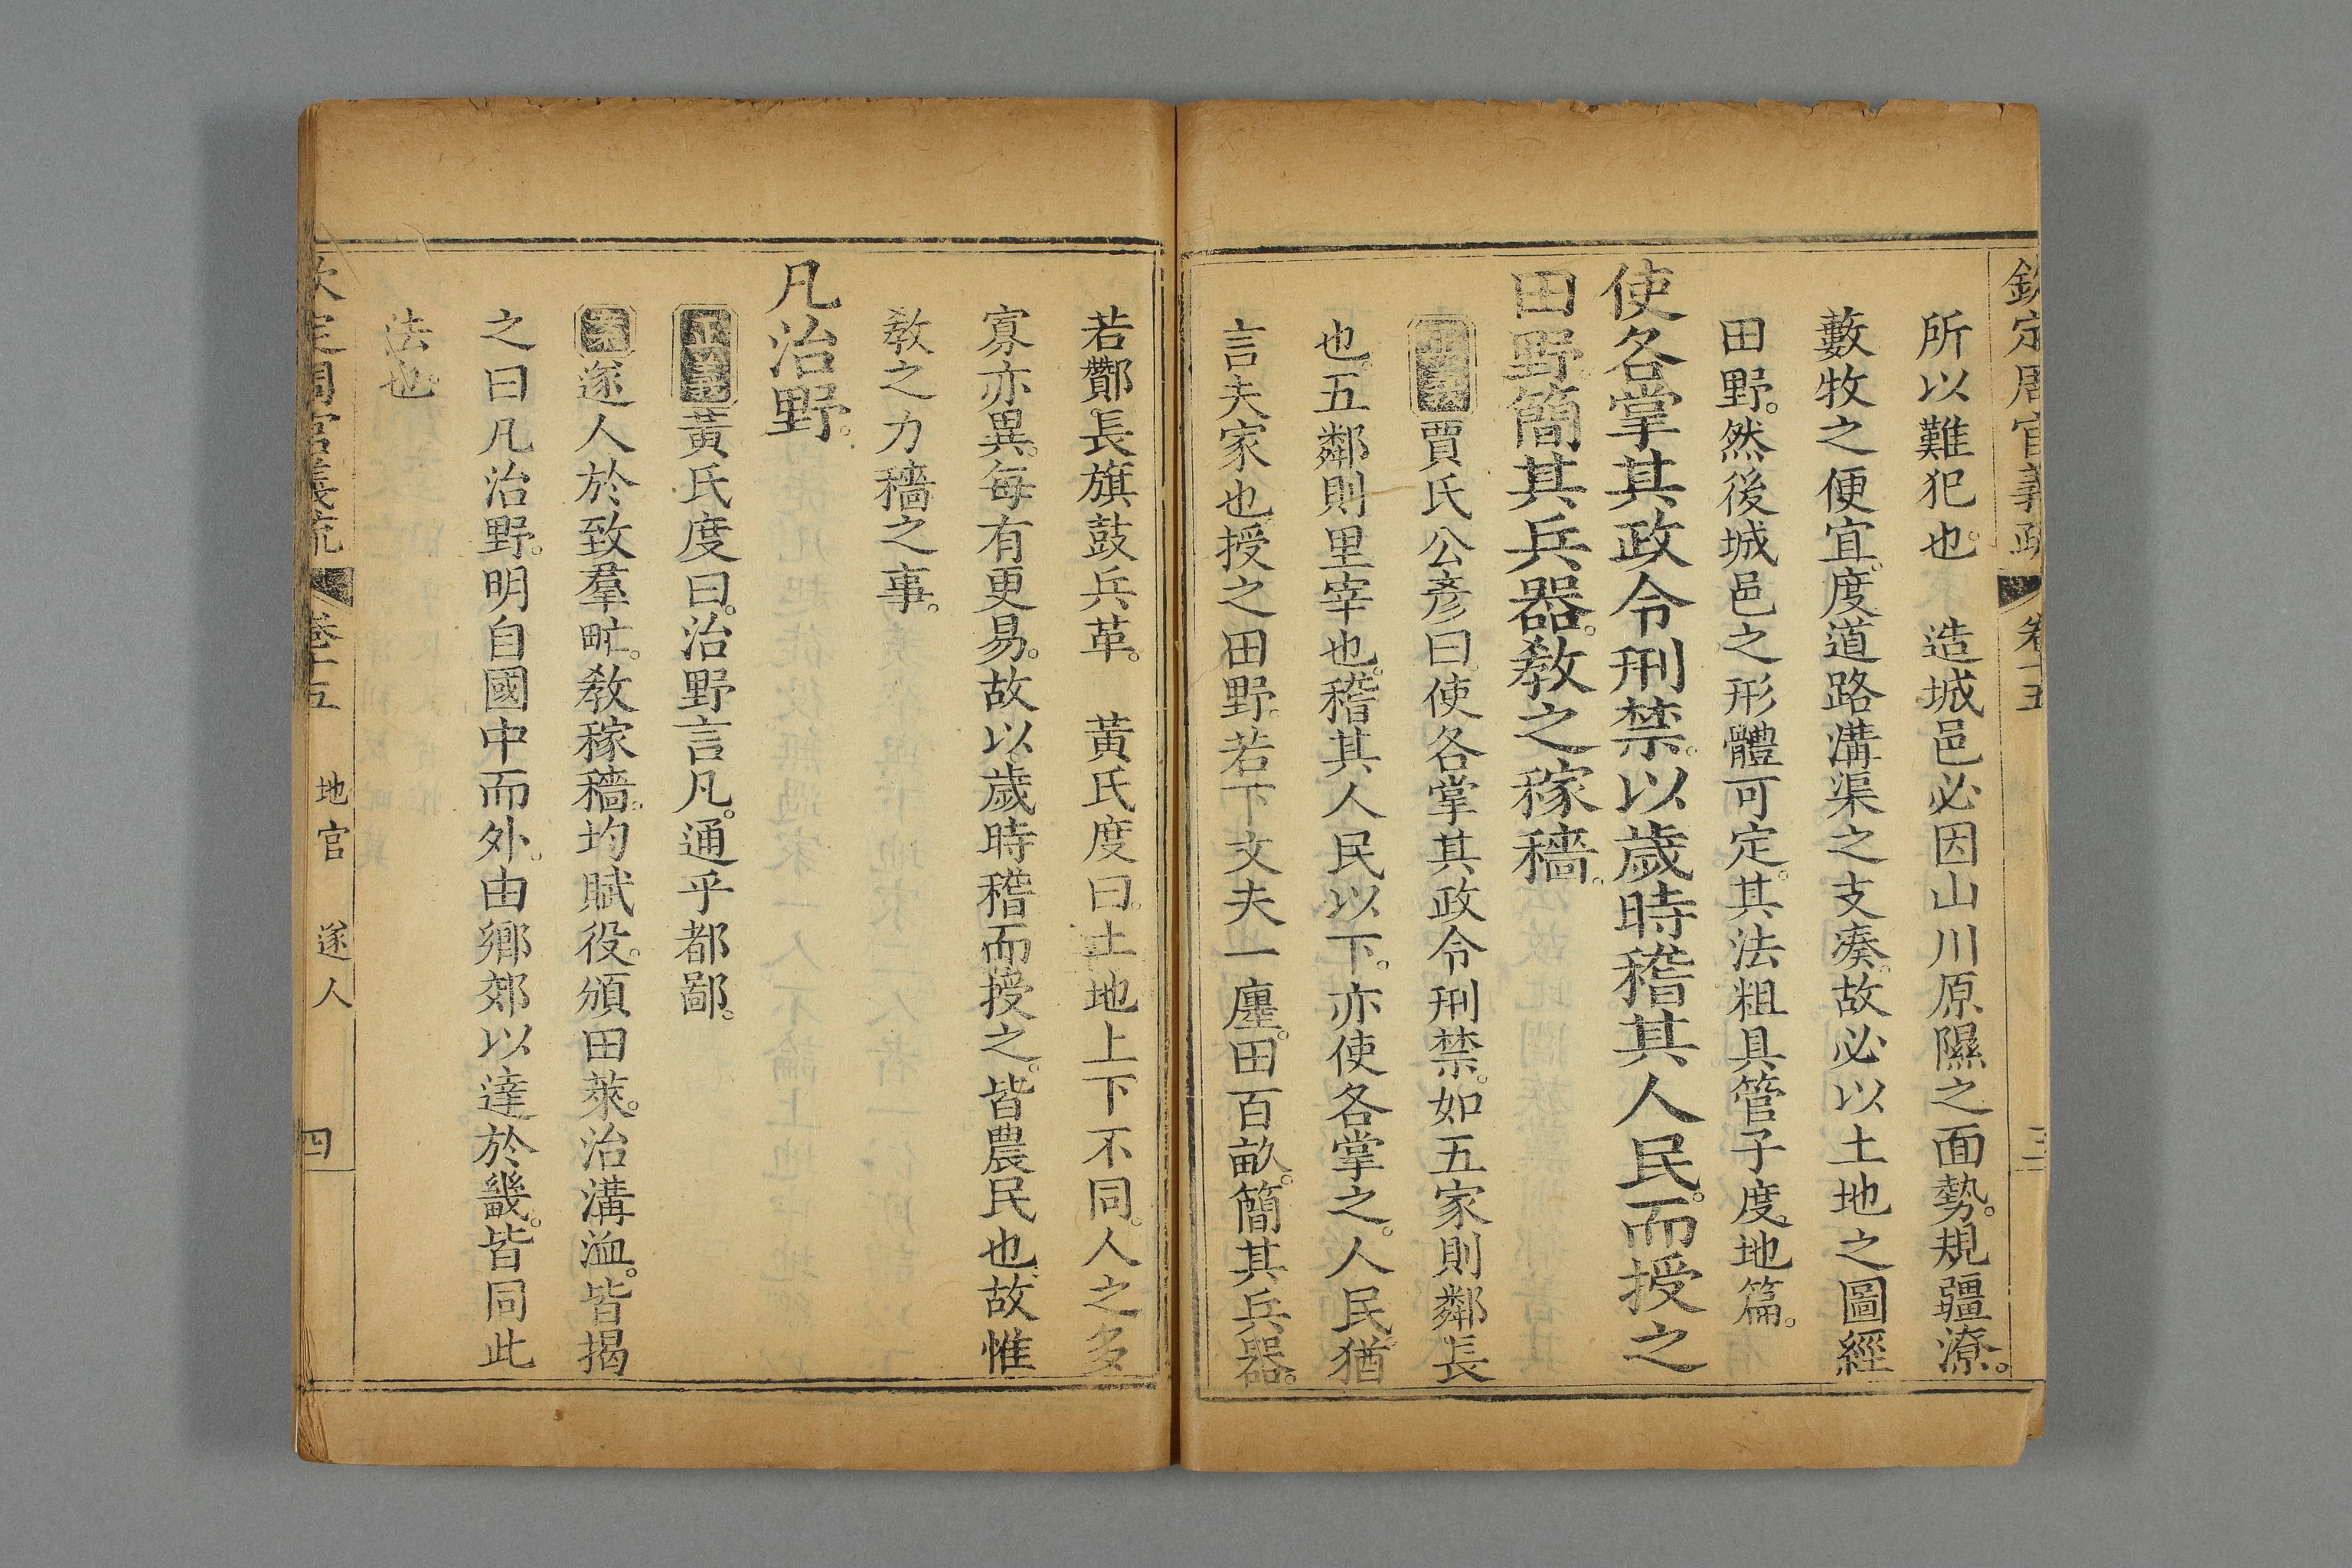 欽定周官義疏 卷十五 三
所以難犯也。 造城邑必因山川原隰之面勢。規疆潦。
藪牧之便宜。度道路溝渠之支湊。故必以土地之圖經
田野。然後城邑之形體可定。其法粗具管子度地篇。
使各掌其政令刑禁。以歲時稽其人民。而授之
田野。簡其兵器。敎之稼穡。
賈氏公彥曰。使各掌其政令刑禁。如五家則鄰長
也。五鄰則里宰也。稽其人民以下。亦使各掌之。人民猶
言夫家也。授之田野。若下文夫一廛。田百畝。簡其兵器。
若酇長旗鼓兵革。 黃氏度曰。土地上下不同。人之多
寡亦異。每有更易。故以歲時稽而授之。皆農民也。故惟
敎之力穡之事。
凡治野。
黃氏度曰。治野言凡。通乎都鄙。
遂人於致羣甿。敎稼穡。均賦役。頒田萊。治溝洫。皆揭
之曰凡治野。明自國中而外。由鄉郊以達於畿。皆同此
法也。
欽定周官義疏 卷十五 地官 遂人 四